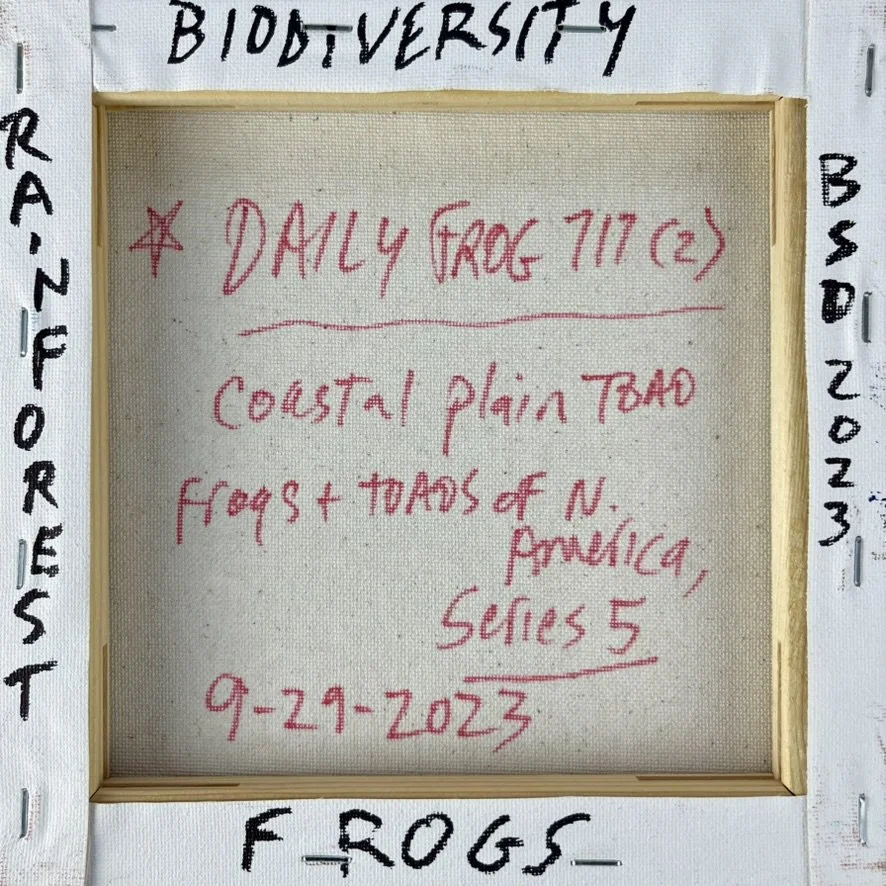 BIODIVERSITY
RAINFOREST
☆ DAILY FROG 717 (2)
Coastal plain TOAD
Frogs + TOADS of N.
America,
Series 5
9-29-2023
BSD 2023
FROGS